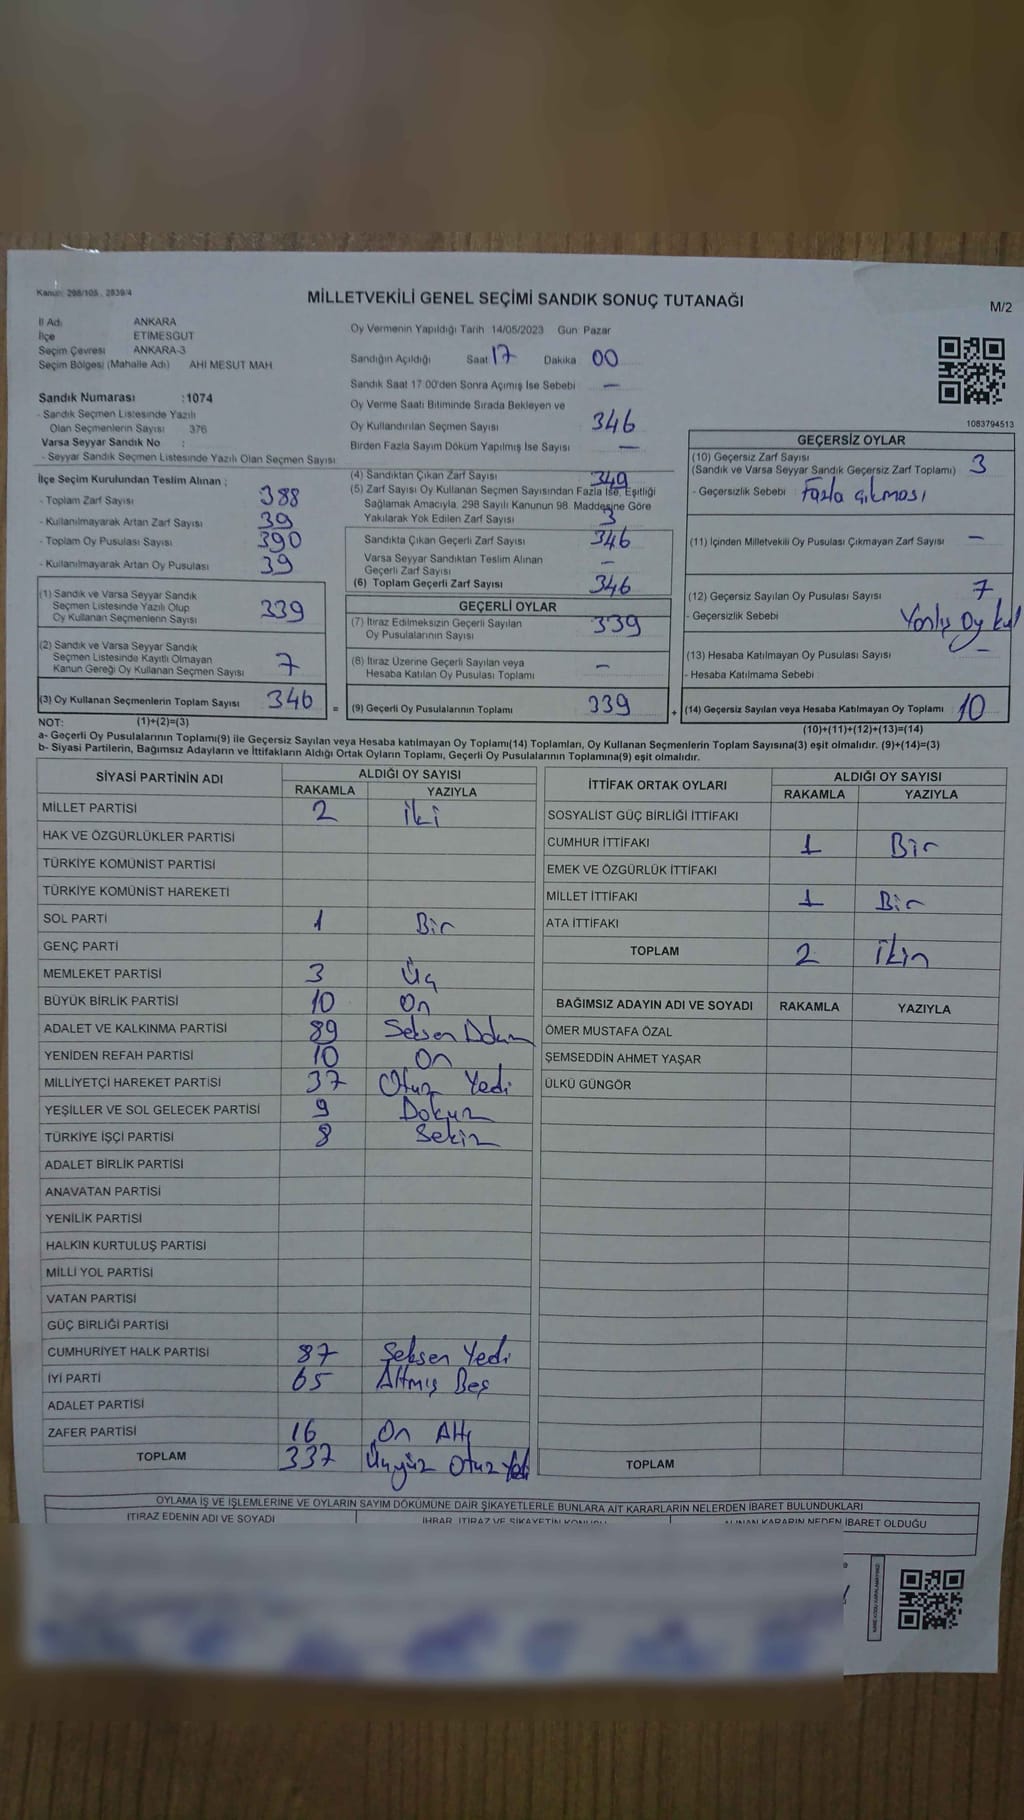 Kanun: 298/105 , 2839/4
MİLLETVEKİLİ GENEL SEÇİMİ SANDIK SONUÇ TUTANAĞI
M/2
İl Adı ANKARA
İlçe ETİMESGUT
Seçim Çevresi ANKARA-3
Seçim Bölgesi (Mahalle Adı) AHİ MESUT MAH
Oy Vermenin Yapıldığı Tarih 14/05/2023 Gün Pazar
Sandığın Açıldığı Saat 17 Dakika 00
Sandık Saat 17 00'den Sonra Açımış İse Sebebi —
Sandık Numarası :1074
- Sandık Seçmen Listesinde Yazılı
Olan Seçmenlerin Sayısı 376
Varsa Seyyar Sandık No :
- Seyyar Sandık Seçmen Listesinde Yazılı Olan Seçmen Sayısı
Oy Verme Saati Bitiminde Sırada Bekleyen ve
Oy Kullandırılan Seçmen Sayısı 346
Birden Fazla Sayım Döküm Yapılmış İse Sayısı —
1083794513
İlçe Seçim Kurulundan Teslim Alınan ;
- Toplam Zarf Sayısı 388
- Kullanılmayarak Artan Zarf Sayısı 39
- Toplam Oy Pusulası Sayısı 390
- Kullanılmayarak Artan Oy Pusulası 39
(1) Sandık ve Varsa Seyyar Sandık
Seçmen Listesinde Yazılı Olup
Oy Kullanan Seçmenlerin Sayısı 339
(2) Sandık ve Varsa Seyyar Sandık
Seçmen Listesinde Kayıtlı Olmayan
Kanun Gereği Oy Kullanan Seçmen Sayısı 7
(3) Oy Kullanan Seçmenlerin Toplam Sayısı 346
(4) Sandıktan Çıkan Zarf Sayısı 349
(5) Zarf Sayısı Oy Kullanan Seçmen Sayısından Fazla İse, Eşitliği
Sağlamak Amacıyla, 298 Sayılı Kanunun 98. Maddesine Göre
Yakılarak Yok Edilen Zarf Sayısı 3
Sandıkta Çıkan Geçerli Zarf Sayısı 346
Varsa Seyyar Sandıktan Teslim Alınan
Geçerli Zarf Sayısı —
(6) Toplam Geçerli Zarf Sayısı 346
GEÇERLİ OYLAR
(7) İtiraz Edilmeksizin Geçerli Sayılan
Oy Pusulalarının Sayısı 339
(8) İtiraz Üzerine Geçerli Sayılan veya
Hesaba Katılan Oy Pusulası Toplamı —
= (9) Geçerli Oy Pusulalarının Toplamı 339
GEÇERSİZ OYLAR
(10) Geçersiz Zarf Sayısı
(Sandık ve Varsa Seyyar Sandık Geçersiz Zarf Toplamı) 3
- Geçersizlik Sebebi : Fazla çıkması
(11) İçinden Milletvekili Oy Pusulası Çıkmayan Zarf Sayısı —
(12) Geçersiz Sayılan Oy Pusulası Sayısı 7
- Geçersizlik Sebebi Yanlış Oy kul
(13) Hesaba Katılmayan Oy Pusulası Sayısı —
- Hesaba Katılmama Sebebi :
+ (14) Geçersiz Sayılan veya Hesaba Katılmayan Oy Toplamı 10
NOT: (1)+(2)=(3) (10)+(11)+(12)+(13)=(14)
a- Geçerli Oy Pusulalarının Toplamı(9) ile Geçersiz Sayılan veya Hesaba katılmayan Oy Toplamı(14) Toplamları, Oy Kullanan Seçmenlerin Toplam Sayısına(3) eşit olmalıdır. (9)+(14)=(3)
b- Siyasi Partilerin, Bağımsız Adayların ve İttifakların Aldığı Ortak Oyların Toplamı, Geçerli Oy Pusulalarının Toplamına(9) eşit olmalıdır.
SİYASİ PARTİNİN ADI ALDIĞI OY SAYISI
RAKAMLA YAZIYLA
MİLLET PARTİSİ 2 iki
HAK VE ÖZGÜRLÜKLER PARTİSİ
TÜRKİYE KOMÜNİST PARTİSİ
TÜRKİYE KOMÜNİST HAREKETİ
SOL PARTİ 1 Bir
GENÇ PARTİ
MEMLEKET PARTİSİ 3 Üç
BÜYÜK BİRLİK PARTİSİ 10 On
ADALET VE KALKINMA PARTİSİ 89 Seksen Dokuz
YENİDEN REFAH PARTİSİ 10 On
MİLLİYETÇİ HAREKET PARTİSİ 37 Otuz Yedi
YEŞİLLER VE SOL GELECEK PARTİSİ 9 Dokuz
TÜRKİYE İŞÇİ PARTİSİ 8 Sekiz
ADALET BİRLİK PARTİSİ
ANAVATAN PARTİSİ
YENİLİK PARTİSİ
HALKIN KURTULUŞ PARTİSİ
MİLLİ YOL PARTİSİ
VATAN PARTİSİ
GÜÇ BİRLİĞİ PARTİSİ
CUMHURİYET HALK PARTİSİ 87 Seksen Yedi
İYİ PARTİ 65 Altmış Beş
ADALET PARTİSİ
ZAFER PARTİSİ 16 On Altı
TOPLAM 337 Üçyüz Otuz Yedi
İTTİFAK ORTAK OYLARI ALDIĞI OY SAYISI
RAKAMLA YAZIYLA
SOSYALİST GÜÇ BİRLİĞİ İTTİFAKI
CUMHUR İTTİFAKI 1 Bir
EMEK VE ÖZGÜRLÜK İTTİFAKI
MİLLET İTTİFAKI 1 Bir
ATA İTTİFAKI
TOPLAM 2 İkin
BAĞIMSIZ ADAYIN ADI VE SOYADI RAKAMLA YAZIYLA
ÖMER MUSTAFA ÖZAL
ŞEMSEDDİN AHMET YAŞAR
ÜLKÜ GÜNGÖR
TOPLAM
OYLAMA İŞ VE İŞLEMLERİNE VE OYLARIN SAYIM DÖKÜMÜNE DAİR ŞİKAYETLERLE BUNLARA AİT KARARLARIN NELERDEN İBARET BULUNDUKLARI
İTİRAZ EDENİN ADI VE SOYADI İHBAR, İTİRAZ VE ŞİKAYETİN KONUSU ALINAN KARARIN NEDEN İBARET OLDUĞU